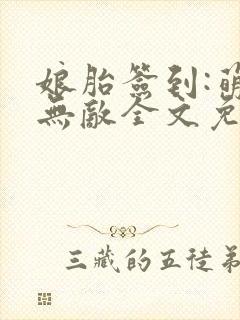 娘胎簽到:萌
無敵全文免
三藏的五徒弟